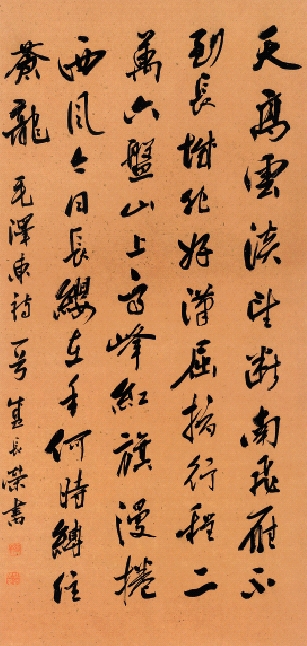 天高雲淡望斷南飛雁不
到長城非好漢屈指行程二
萬六盤山上高峰紅旗漫捲
西風今日長纓在手何時縛住
蒼龍 毛澤東詩一首 長榮書